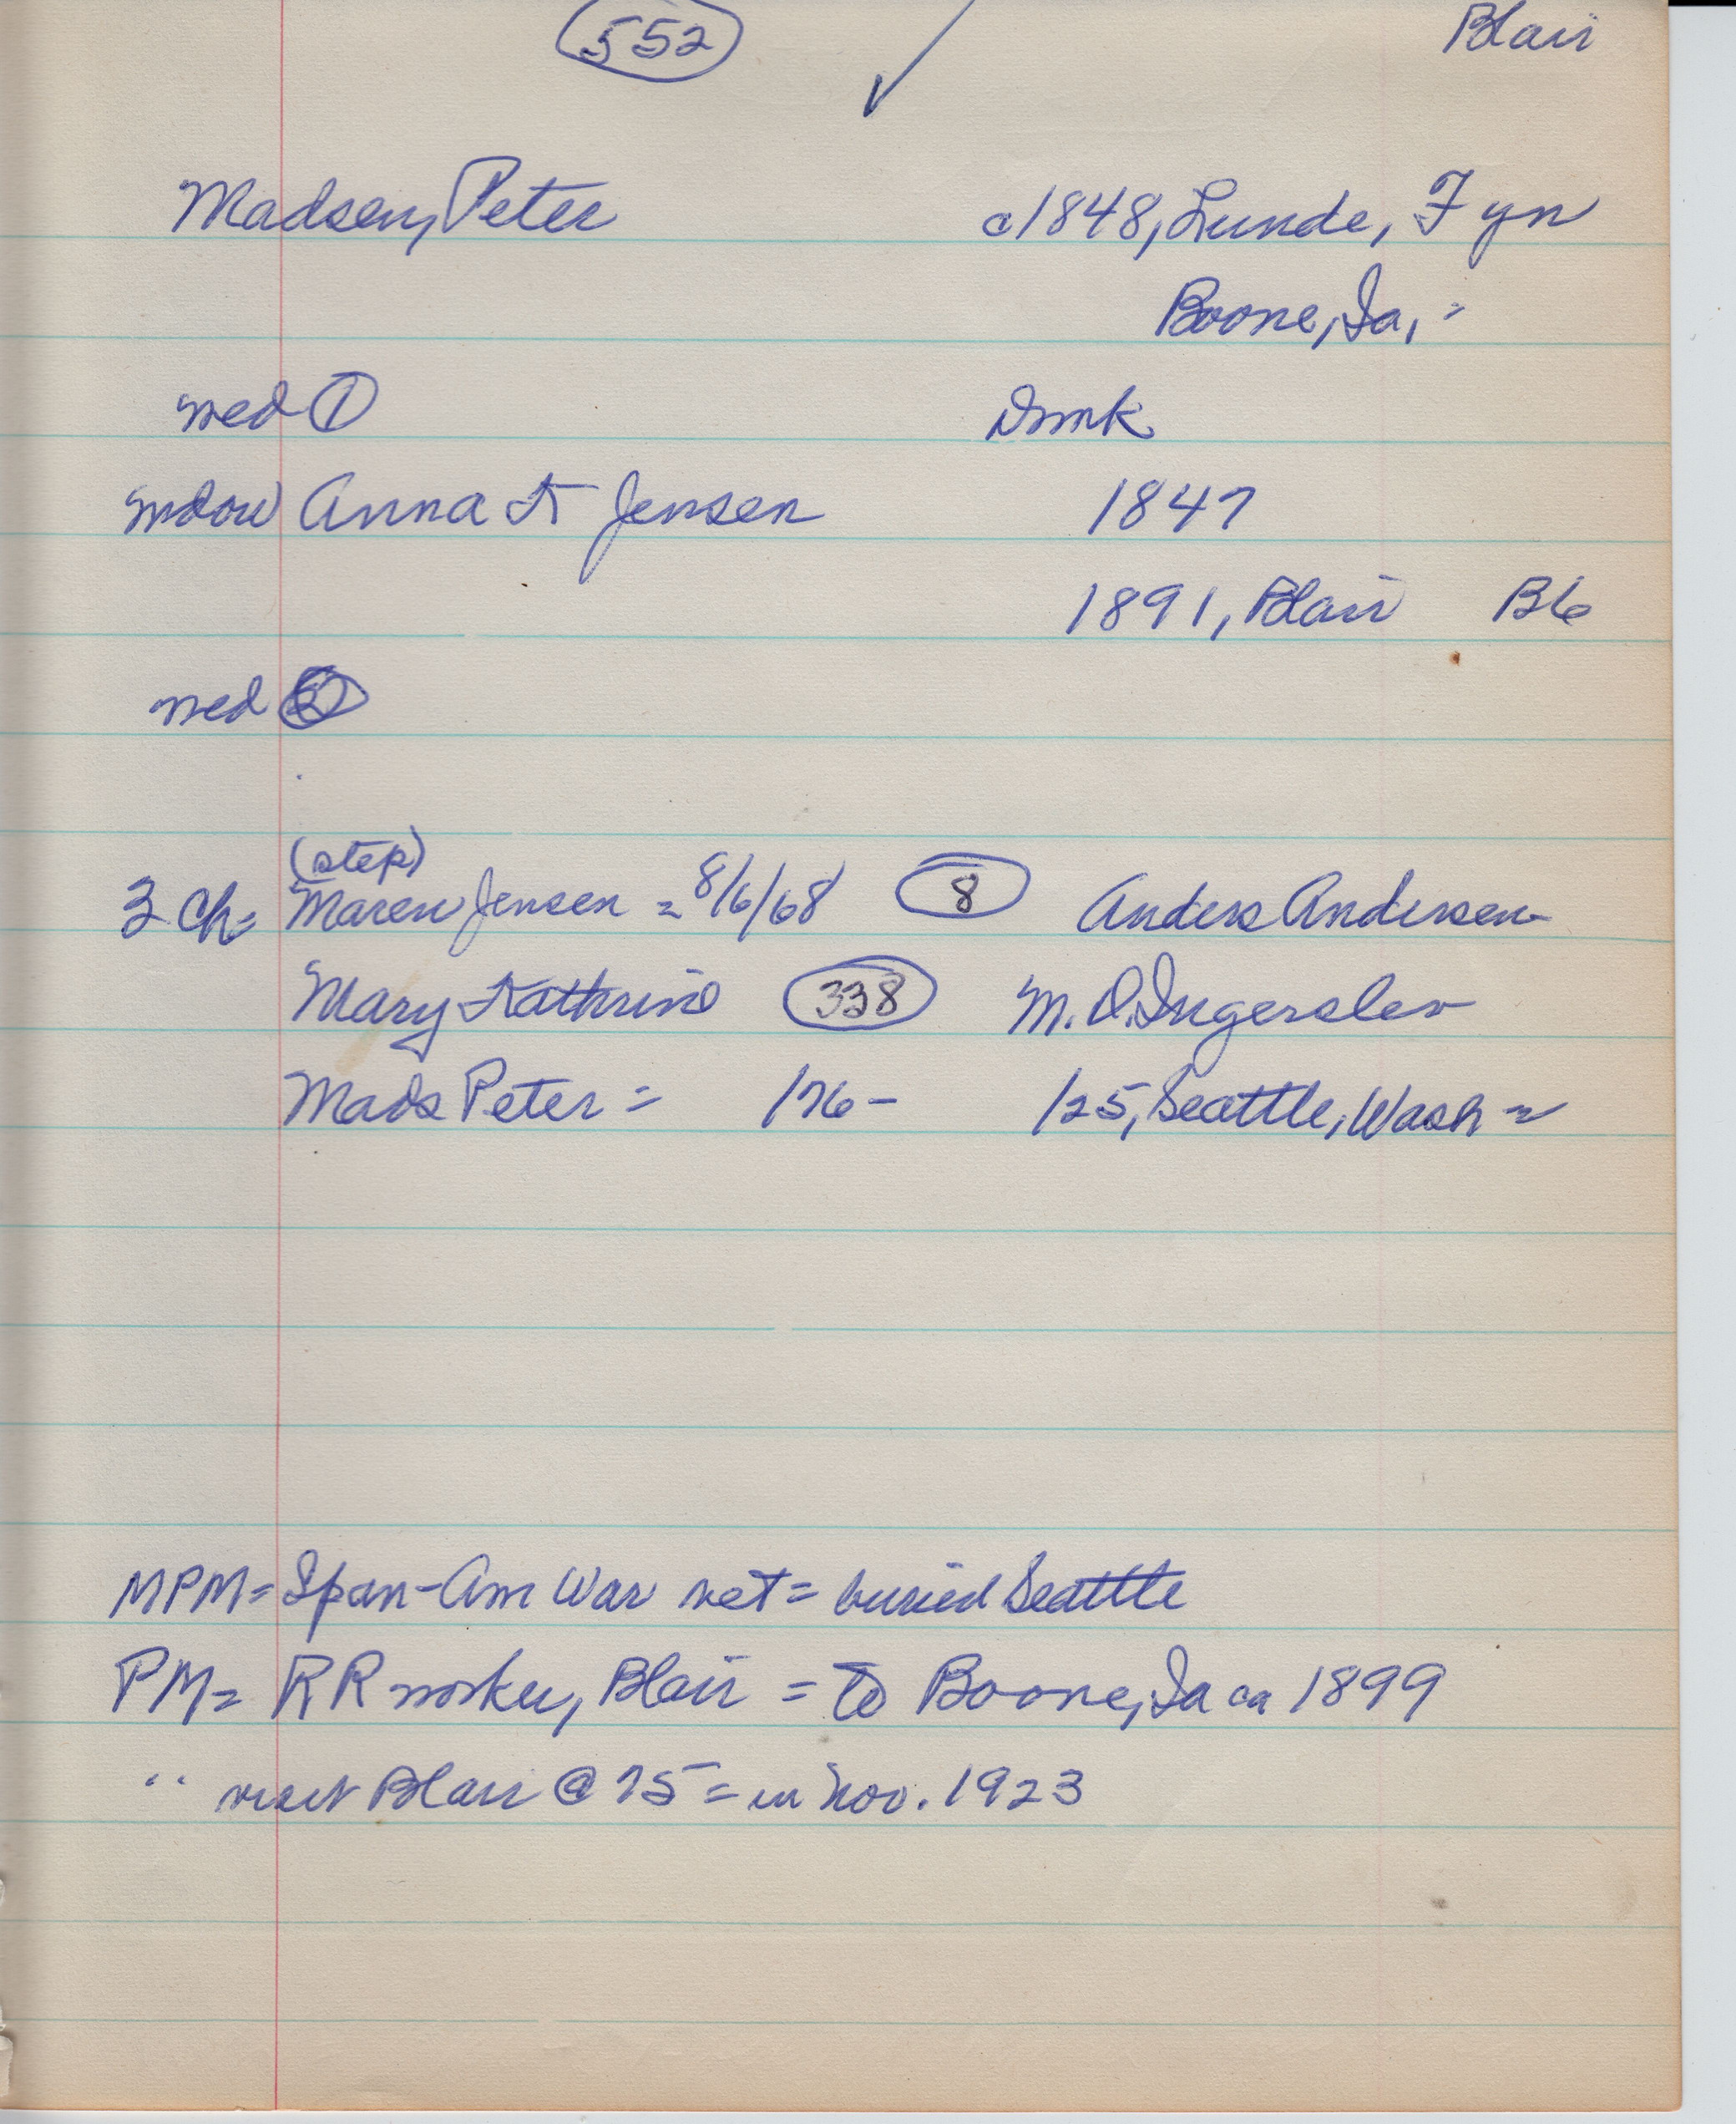 552 Blair
Madsen, Peter c1848, Lunde, Fyn
Boone, Ia, =
wed ① Dmk
wdow Anna K Jensen 1847
1891, Blair B6
wed
(step)
3 Ch = Maren Jensen = 8/6/68 8 Anders Andersen
Mary Kathrine 338 M. O. Ingerslev
Mads Peter = /76 - /25, Seattle, Wash =
MPM = Span-Am War vet = buried Seattle
PM = RR worker, Blair = to Boone, Ia ca 1899
" visit Blair @ 75 = in Nov. 1923